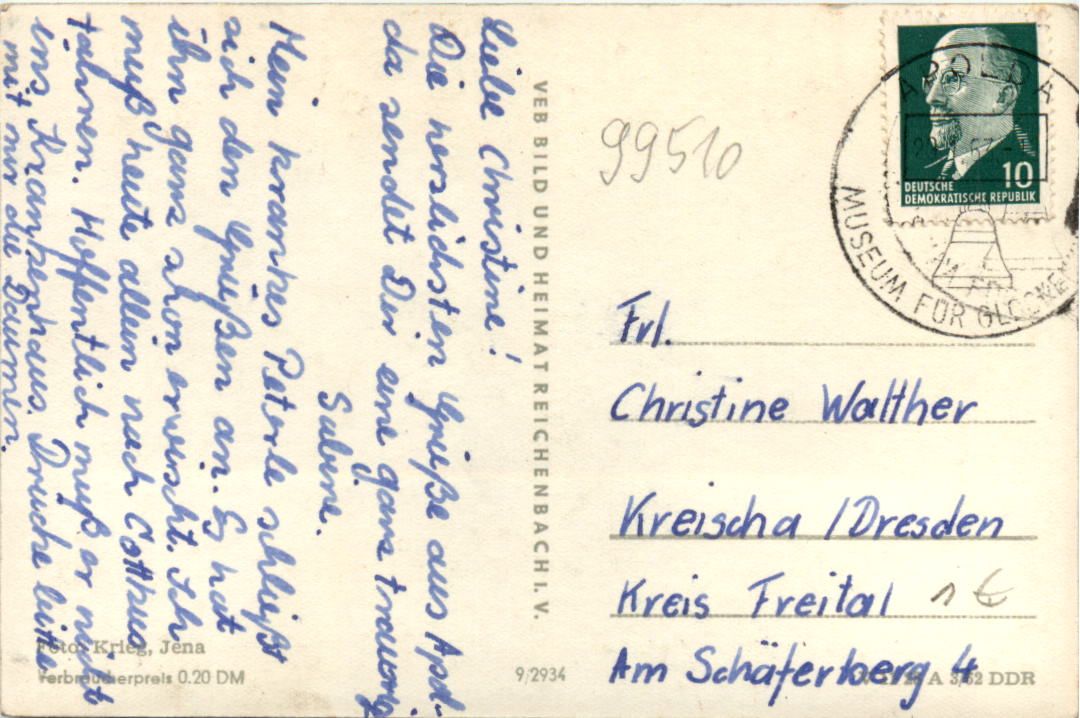 Liebe Christine!
Die herzlichsten Grüße aus Apol-
da sendet Dir eine ganz traurige
Sabine.
Mein krankes Peterle schließt
sich den Grüßen an. Es hat
ihn ganz schön erwischt. Ich
muß heute allein nach Cottbus
fahren. Hoffentlich muß er nicht
ins Krankenhaus. Drücke bitte
mit mir die Daumen.
VEB BILD UND HEIMAT REICHENBACH I. V.
Foto: Krieg, Jena
Verbraucherpreis 0.20 DM
9/2934
99510
APOLDA
MUSEUM FÜR GLOCKEN
10
DEUTSCHE
DEMOKRATISCHE REPUBLIK
Frl.
Christine Walther
Kreischa / Dresden
Kreis Freital
1 €
Am Schäferberg 4
A 3/62 DDR